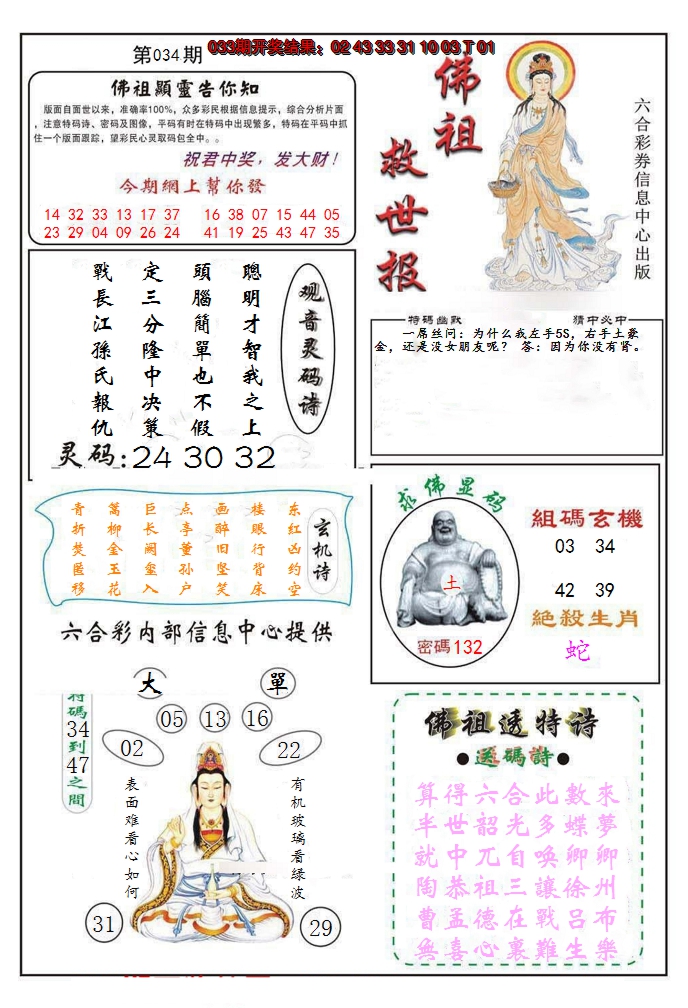 第034期
033期开奖结果：02 43 33 31 10 03 T 01
佛祖顯靈告你知
版面自面世以来，准确率100%，众多彩民根据信息提示，综合分析片面
，注意特码诗、密码及图像，平码有时在特码中出现繁多，特码在平码中抓
住一个版面跟踪，望彩民心灵取码包全中。。
祝君中奖，发大财！
今期網上幫你發
14 32 33 13 17 37 16 38 07 15 44 05
23 29 04 09 26 24 41 19 25 43 47 35
佛祖
救世报
六合彩券信息中心出版
聰明才智我之上
頭腦簡單也不假
定三分隆中决策
戰長江孫氏報仇
观音灵码诗
灵码:24 30 32
特碼幽默
猜中必中
一屌丝问：为什么我左手5S，右手土豪
金，还是没女朋友呢？ 答：因为你没有肾。
玄机诗
东红凶约空
楼眼行背床
画醉旧坚笑
点享董孙户
巨长阙奁入
蒿柳金玉花
青折焚匿移
六合彩内部信息中心提供
求佛显码
土
密碼132
組碼玄機
03 34
42 39
絕殺生肖
蛇
大
單
特碼34到47之間
05 13 16
02
22
表面难看心如何
有机玻璃看绿波
31
29
佛祖透特诗
●送碼詩●
算得六合此數來
半世韶光多蝶夢
就中兀自唤卿卿
陶恭祖三讓徐州
曹孟德在戰吕布
無喜心裏難生樂